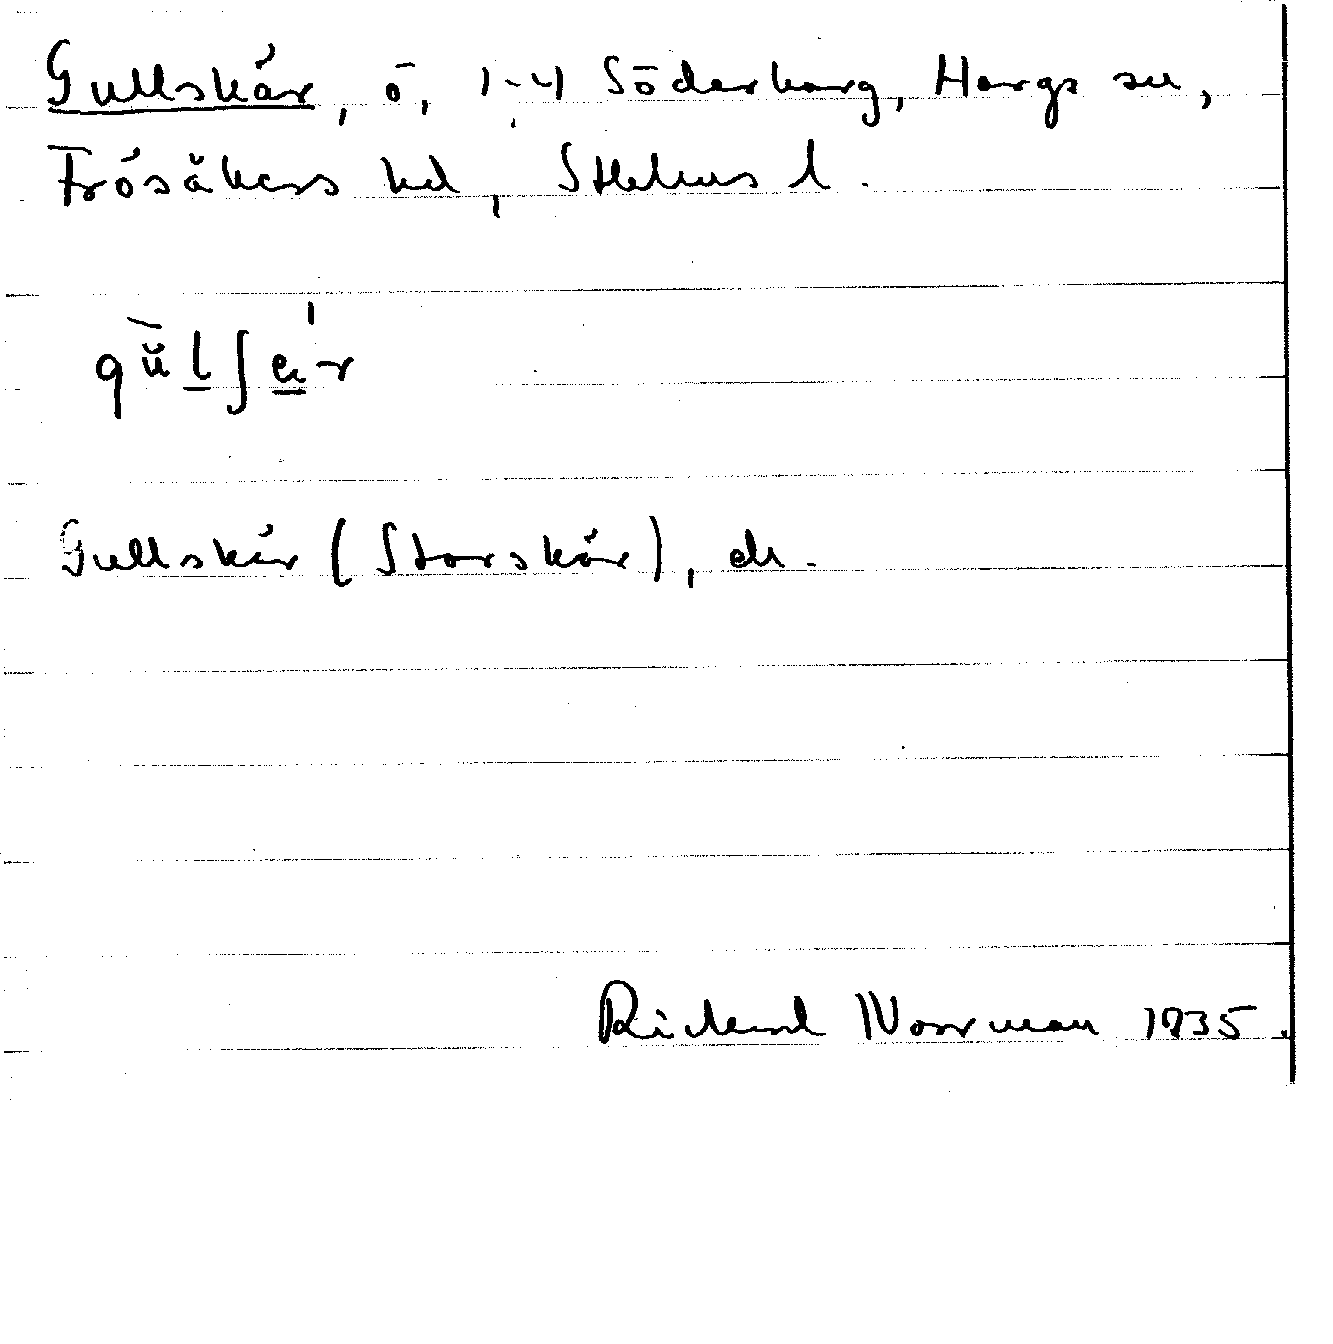 Gullskär, ö, 1-4 Söderharg, Hargs sn,
Frösåkers hd, Sthlms l.
Gullskär (Storskär), ek.
Rickard Norrman 1935.